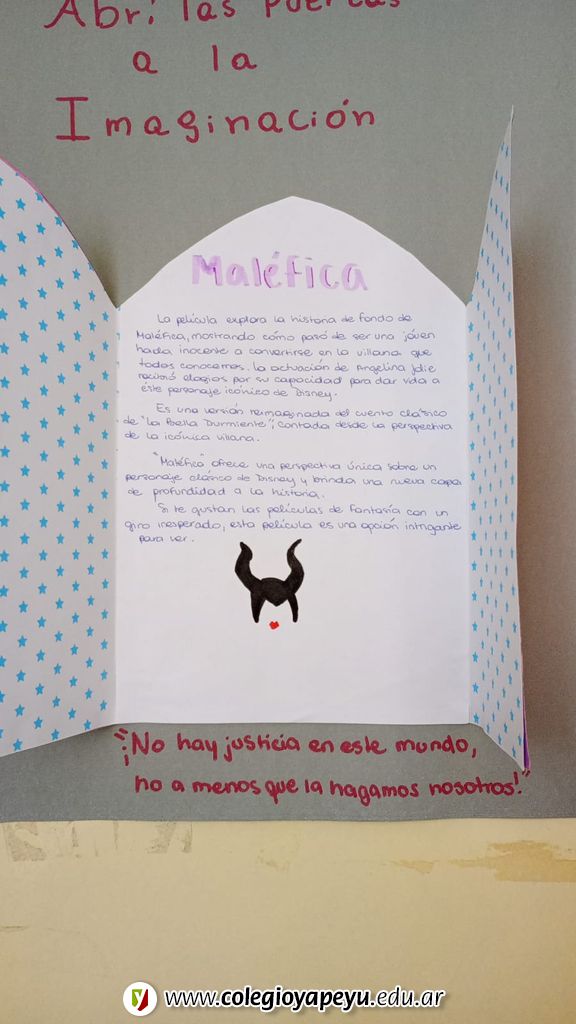 Abrí las Puertas
a la
Imaginación
Maléfica
La película explora la historia de fondo de
Maléfica, mostrando cómo pasó de ser una joven
hada inocente a convertirse en la villana que
todos conocemos. La actuación de Angelina Jolie
recibió elogios por su capacidad para dar vida a
éste personaje icónico de Disney.
Es una versión reimaginada del cuento clásico
de "La Bella Durmiente", contada desde la perspectiva
de la icónica villana.
"Maléfica" ofrece una perspectiva única sobre un
personaje clásico de Disney y brinda una nueva capa
de profundidad a la historia.
Si te gustan las películas de Fantasía con un
giro inesperado, esta película es una opción intrigante
para ver.
"¡No hay justicia en este mundo,
no a menos que la hagamos nosotros!"
www.colegioyapeyu.edu.ar